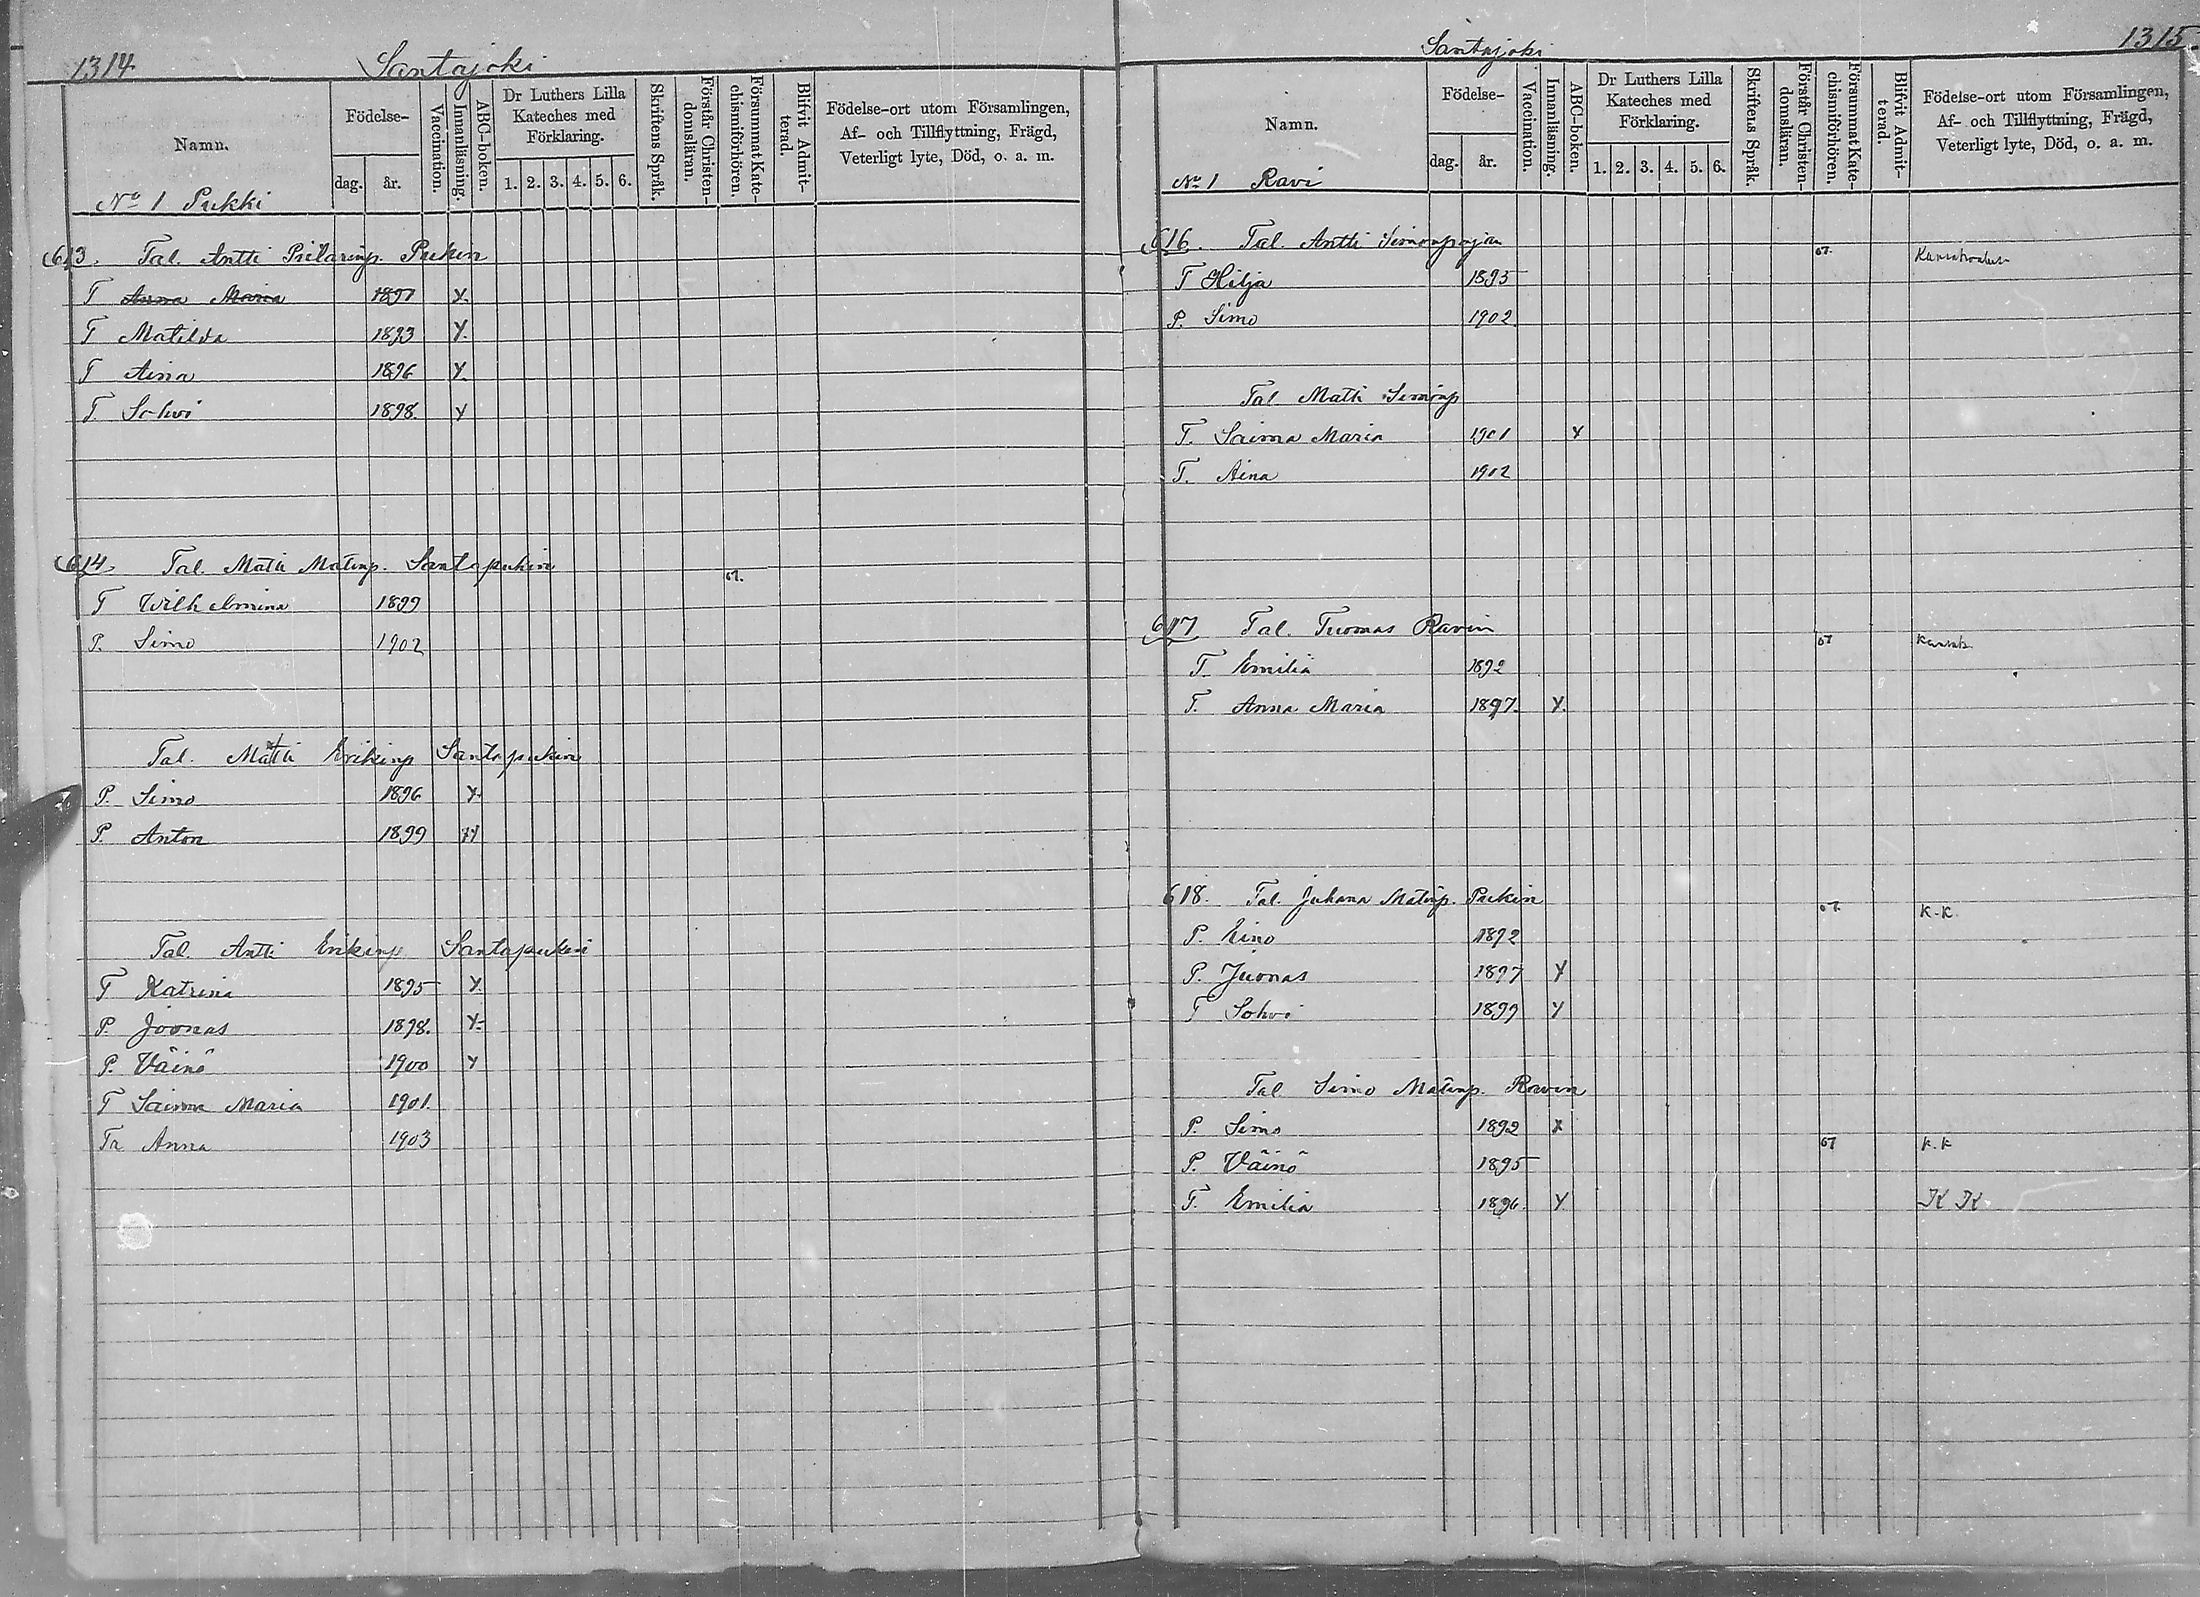 1314 Santajoki
Namn.
Födelse-
dag.
år.
Vaccination.
Innanläsning.
ABC-boken.
Dr Luthers Lilla
Kateches med
Förklaring.
1. 2. 3. 4. 5. 6.
Skriftens Språk.
Förstår Christen-
domsläran.
Försummat Kate-
chismiförhören.
Blifvit Admit-
terad.
Födelse-ort utom Församlingen,
Af- och Tillflyttning, Frägd,
Veterligt lyte, Död, o. a. m.
No 1 Pukki
613. Tal. Antti Pukin
T Anna Maria 1891 Y
T Matilda 1893 Y
T Aina 1896 Y
T. Sohvi 1898. Y
614. Tal. Matti Matinp. Santapukin 07.
T Wilhelmina 1899
P. Simo 1902
Tal. Matti Erikinp Santapukin
P. Simo 1896 Y
P. Anton 1899 YY
Tal. Antti Erikinp Santapukin
T Katrina 1895 Y
P. Joonas 1898. Y
P. Väinö 1900 Y
T Saima Maria 1901
Tr Anna 1903
Santajoki 1315
Namn.
Födelse-
dag.
år.
Vaccination.
Innanläsning.
ABC-boken.
Dr Luthers Lilla
Kateches med
Förklaring.
1. 2. 3. 4. 5. 6.
Skriftens Språk.
Förstår Christen-
domsläran.
Försummat Kate-
chismiförhören.
Blifvit Admit-
terad.
Födelse-ort utom Församlingen,
Af- och Tillflyttning, Frägd,
Veterligt lyte, Död, o. a. m.
No 1 Ravi
616. Tal. Antti Simonpojan 07.
T Hilja 1895
P. Simo 1902
Tal Matti Simonp
T. Saima Maria 1901 Y
T. Aina 1902
617 Tal. Tuomas Ravin 07
T. Emilia 1892
T. Anna Maria 1897. Y.
618. Tal. Juhana Matinp. Pukin 07. K.K.
P. Eino 1892
P. Juonas 1897 Y
T Sohvi 1899 Y
Tal Simo Matinp. Ravin
P. Simo 1892 X 07 K.K
P. Väinö 1895
T. Emilia 1896. Y K K